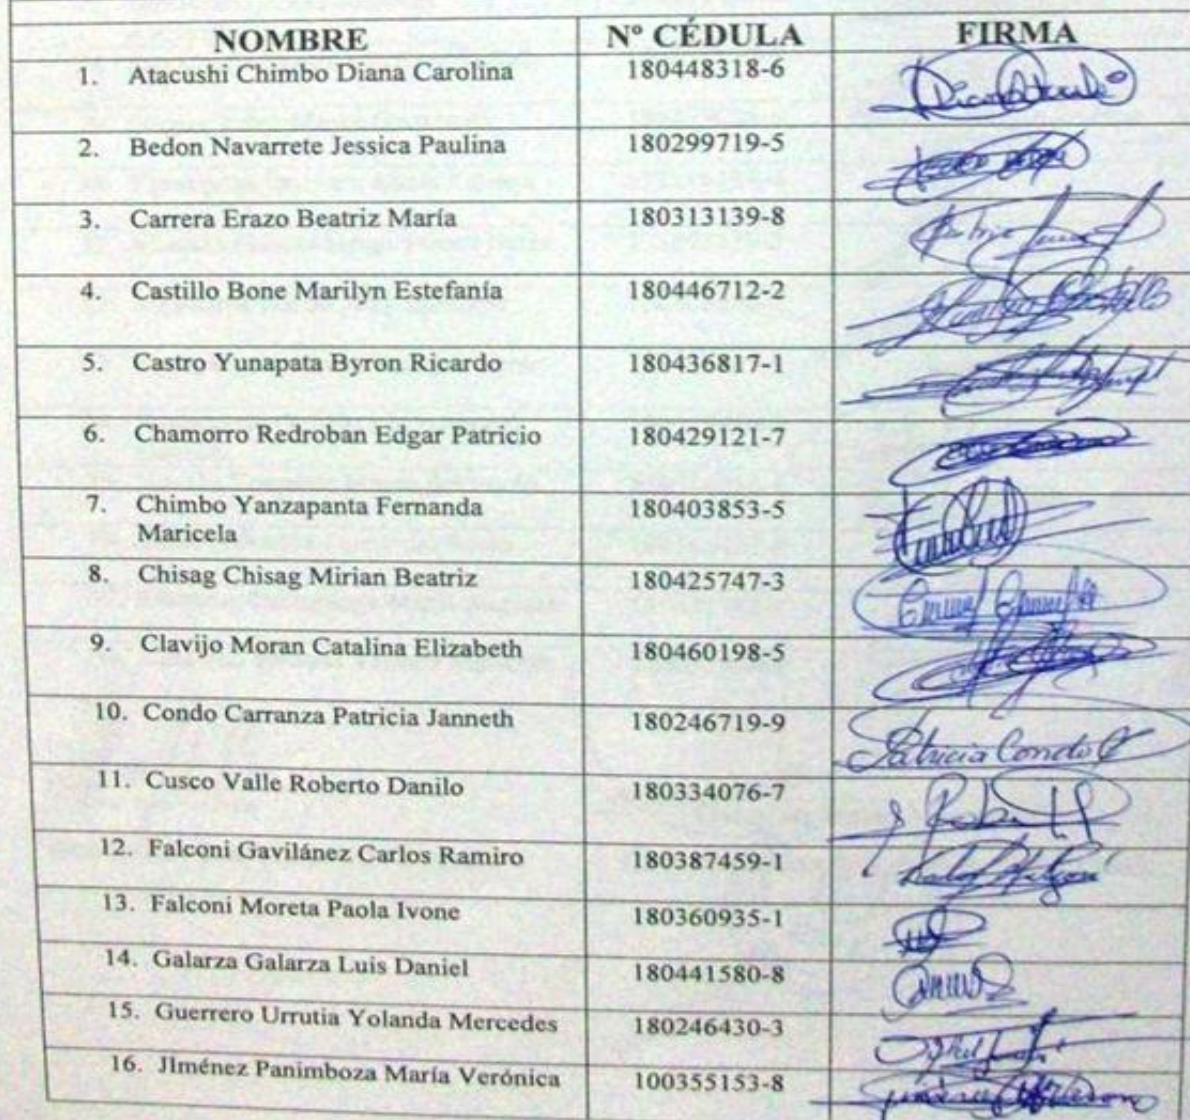 NOMBRE Nº CÉDULA FIRMA
1. Atacushi Chimbo Diana Carolina 180448318-6
2. Bedon Navarrete Jessica Paulina 180299719-5
3. Carrera Erazo Beatriz María 180313139-8
4. Castillo Bone Marilyn Estefanía 180446712-2
5. Castro Yunapata Byron Ricardo 180436817-1
6. Chamorro Redroban Edgar Patricio 180429121-7
7. Chimbo Yanzapanta Fernanda 180403853-5
Maricela
8. Chisag Chisag Mirian Beatriz 180425747-3
9. Clavijo Moran Catalina Elizabeth 180460198-5
10. Condo Carranza Patricia Janneth 180246719-9
Patricia Condo C
11. Cusco Valle Roberto Danilo 180334076-7
12. Falconi Gavilánez Carlos Ramiro 180387459-1
13. Falconi Moreta Paola Ivone 180360935-1
14. Galarza Galarza Luis Daniel 180441580-8
15. Guerrero Urrutia Yolanda Mercedes 180246430-3
16. JIménez Panimboza María Verónica 100355153-8